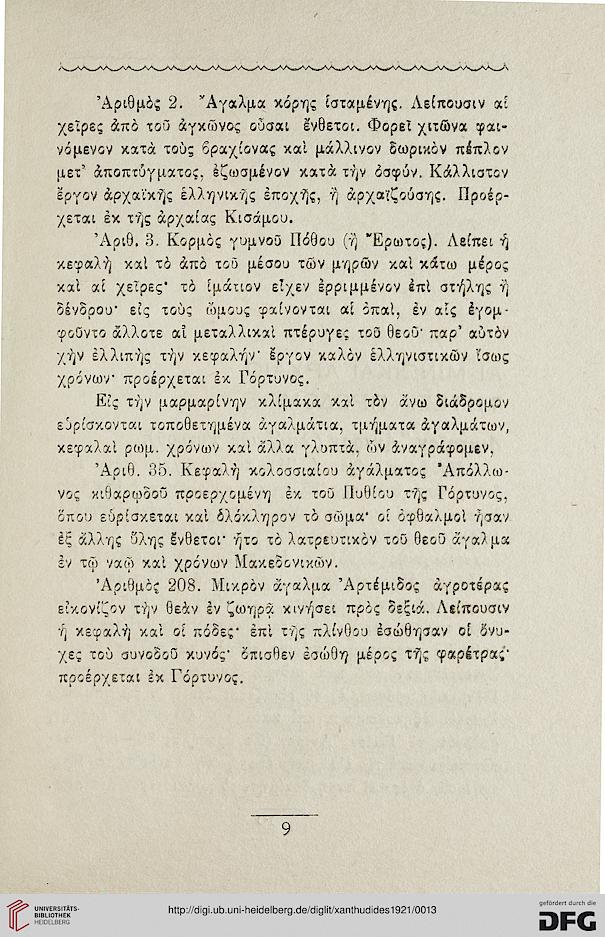 Ἀριθμὸς 2. Ἄγαλμα κόρης ἱσταμένης. Λείπουσιν αἱ
χεῖρες ἀπὸ τοῦ ἀγκῶνος οὖσαι ἔνθετοι. Φορεῖ χιτῶνα φαι-
νόμενον κατὰ τοὺς βραχίονας καὶ μάλλινον δωρικὸν πέπλον
μετ’ ἀποπτύγματος, ἐζωσμένον κατὰ τὴν ὀσφύν. Κάλλιστον
ἔργον ἀρχαϊκῆς ἑλληνικῆς ἐποχῆς, ἢ ἀρχαϊζούσης. Προέρ-
χεται ἐκ τῆς ἀρχαίας Κισάμου.
Ἀριθ. 3. Κορμὸς γυμνοῦ Πόθου (ἢ Ἔρωτος). Λείπει ἡ
κεφαλὴ καὶ τὸ ἀπὸ τοῦ μέσου τῶν μηρῶν καὶ κάτω μέρος
καὶ αἱ χεῖρες· τὸ ἱμάτιον εἶχεν ἐρριμμένον ἐπὶ στήλης ἢ
δένδρου· εἰς τοὺς ὤμους φαίνονται αἱ ὀπαί, ἐν αἷς ἐγομ-
φοῦντο ἄλλοτε αἱ μεταλλικαὶ πτέρυγες τοῦ θεοῦ· παρ’ αὐτὸν
χὴν ἐλλιπὴς τὴν κεφαλήν· ἔργον καλὸν ἑλληνιστικῶν ἴσως
χρόνων· προέρχεται ἐκ Γόρτυνος.
Εἰς τὴν μαρμαρίνην κλίμακα καὶ τὸν ἄνω διάδρομον
εὑρίσκονται τοποθετημένα ἀγαλμάτια, τμήματα ἀγαλμάτων,
κεφαλαὶ ρωμ. χρόνων καὶ ἄλλα γλυπτὰ, ὧν ἀναγράφομεν,
Ἀριθ. 35. Κεφαλὴ κολοσσιαίου ἀγάλματος Ἀπόλλω-
νος κιθαρῳδοῦ προερχομένη ἐκ τοῦ Πυθίου τῆς Γόρτυνος,
ὅπου εὑρίσκεται καὶ ὁλόκληρον τὸ σῶμα· οἱ ὀφθαλμοὶ ἦσαν
ἐξ ἄλλης ὕλης ἔνθετοι· ἦτο τὸ λατρευτικὸν τοῦ θεοῦ ἄγαλμα
ἐν τῷ ναῷ καὶ χρόνων Μακεδονικῶν.
Ἀριθμὸς 208. Μικρὸν ἄγαλμα Ἀρτέμιδος ἀγροτέρας
εἰκονίζον τὴν θεὰν ἐν ζωηρᾷ κινήσει πρὸς δεξιά. Λείπουσιν
ἡ κεφαλὴ καὶ οἱ πόδες· ἐπὶ τῆς πλίνθου ἐσώθησαν οἱ ὄνυ-
χες τοῦ συνοδοῦ κυνός· ὄπισθεν ἐσώθη μέρος τῆς φαρέτρας·
προέρχεται ἐκ Γόρτυνος.
9
UNIVERSITÄTS-
BIBLIOTHEK
HEIDELBERG
http://digi.ub.uni-heidelberg.de/diglit/xanthudides1921/0013
gefördert durch die
DFG